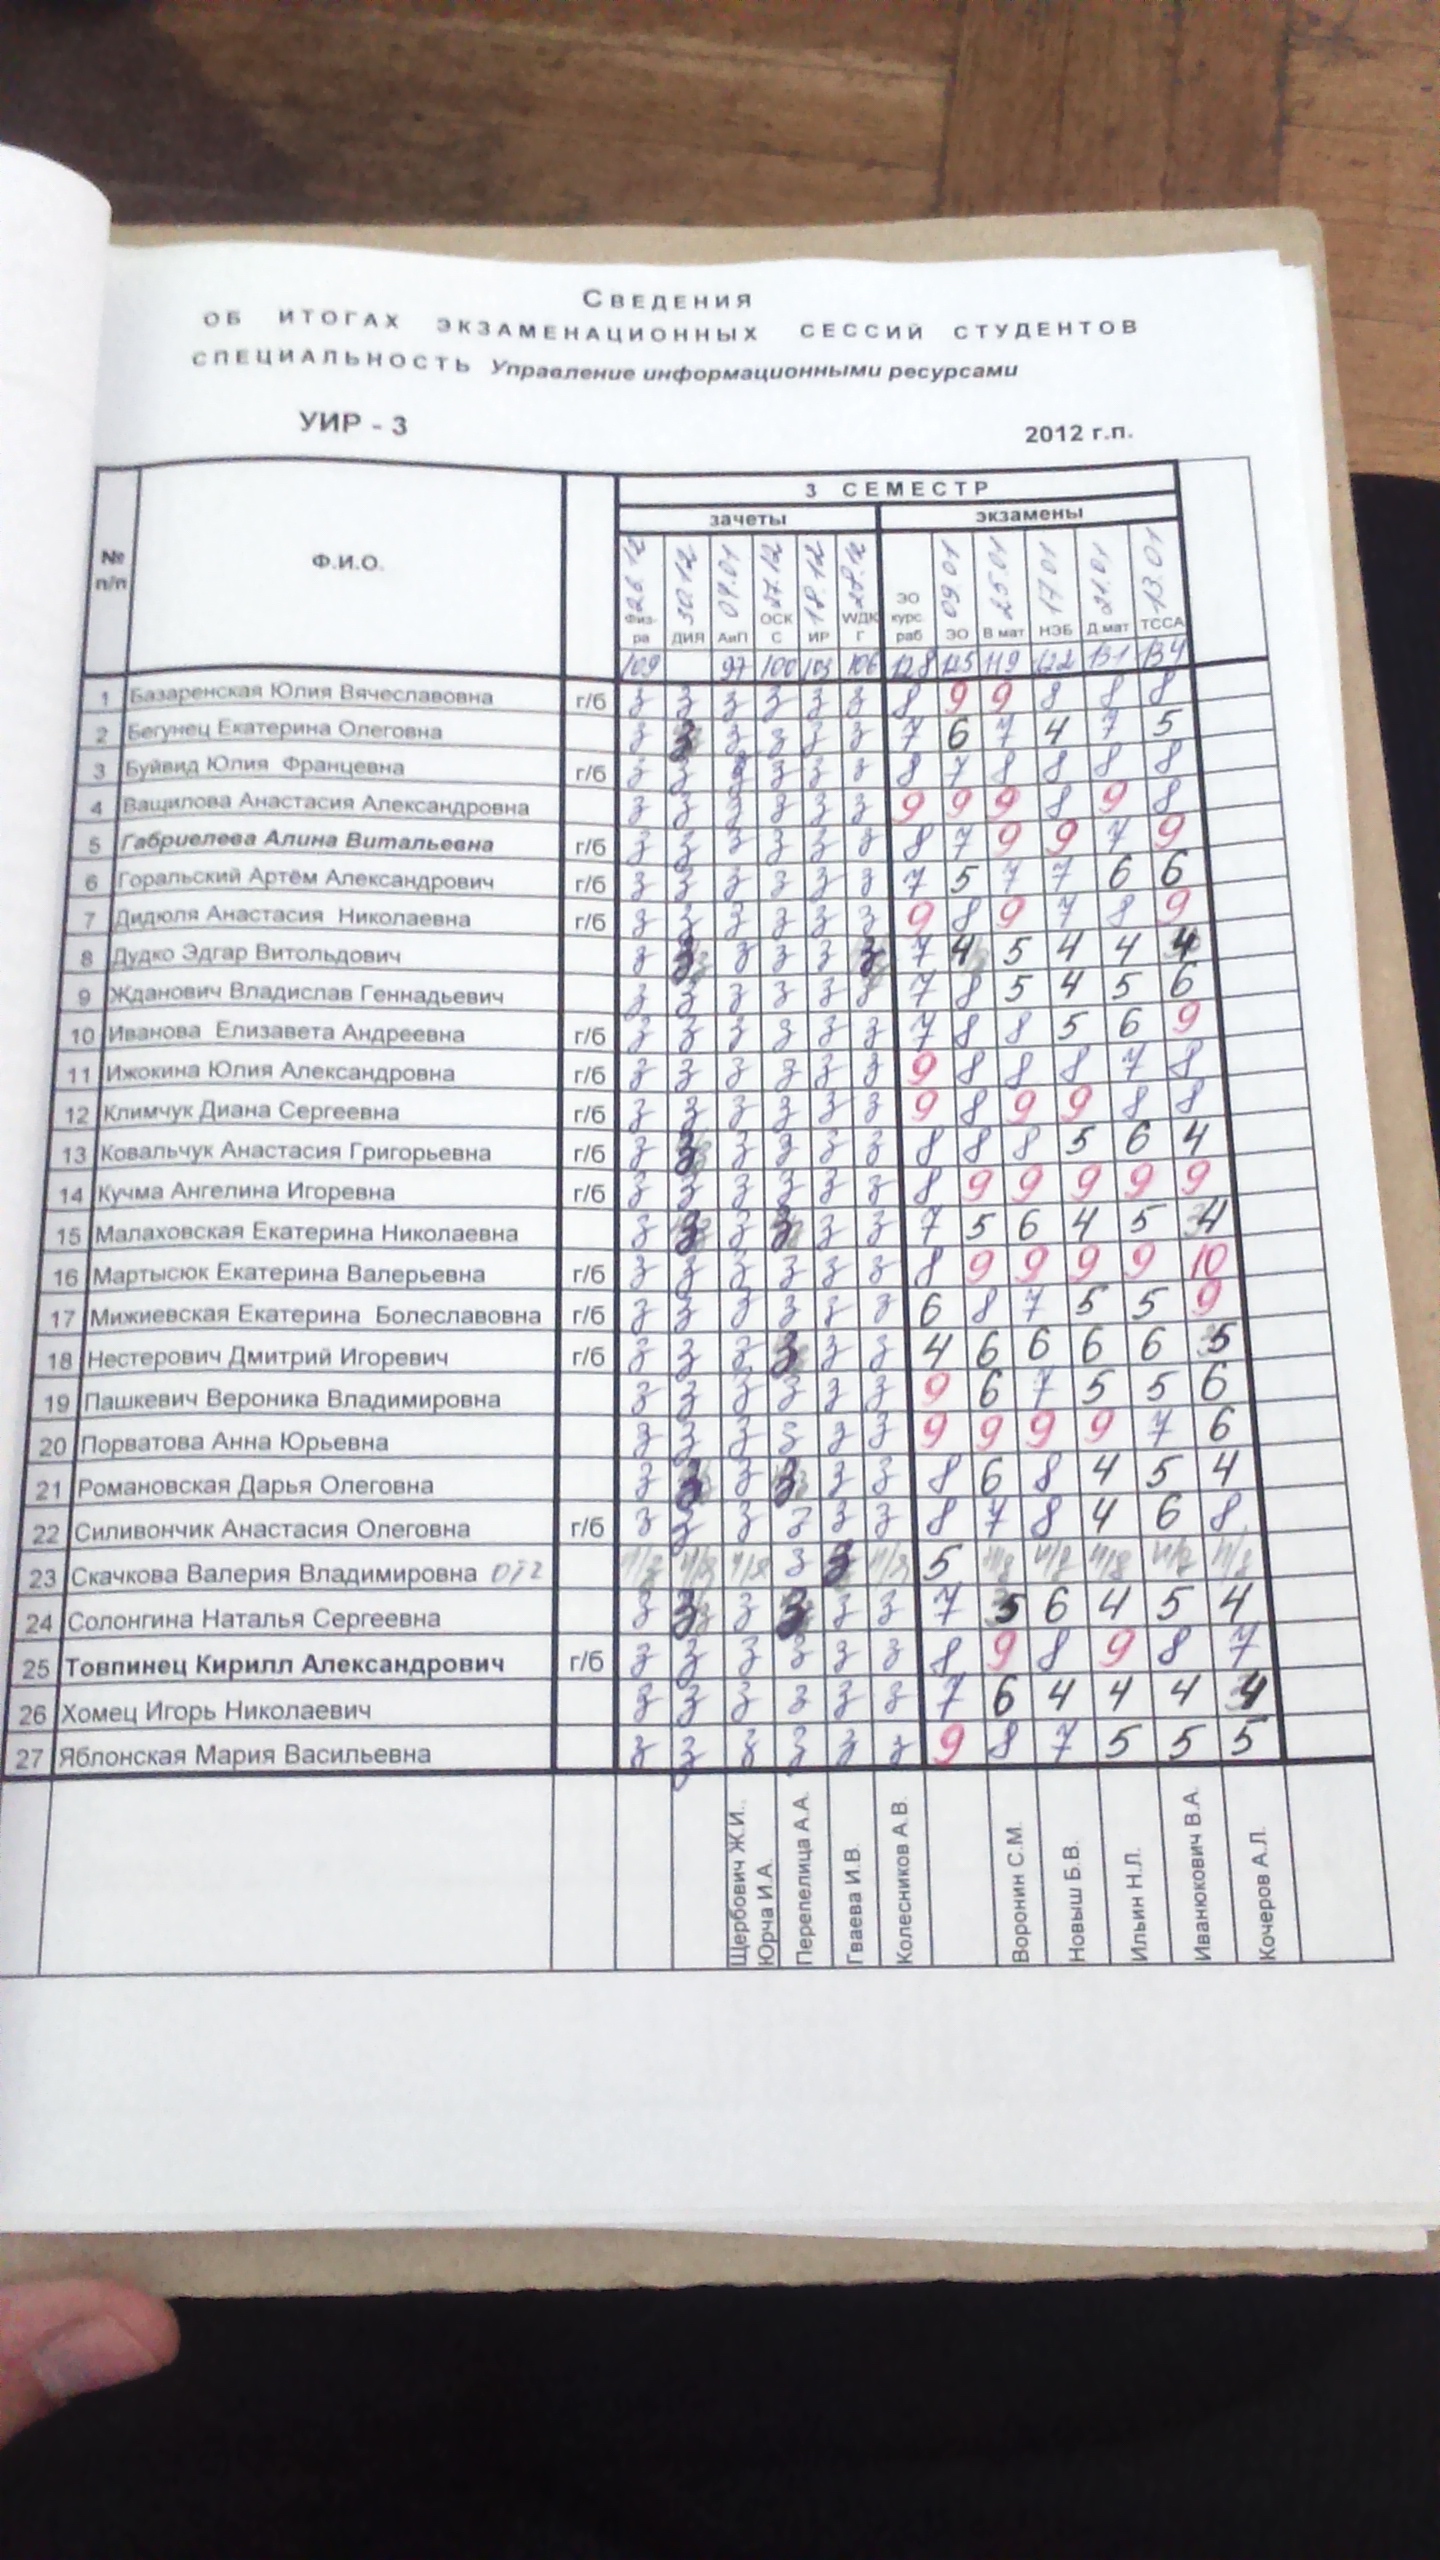 СВЕДЕНИЯ
ОБ ИТОГАХ ЭКЗАМЕНАЦИОННЫХ СЕССИЙ СТУДЕНТОВ
СПЕЦИАЛЬНОСТЬ Управление информационными ресурсами
УИР - 3 2012 г.п.
№ п/п Ф.И.О. 3 СЕМЕСТР
зачеты экзамены
26.12 30.12 04.01 27.12 18.12 28.12 09.01 25.01 17.01 21.01 13.01
Физ-ра ДИЯ АиП ОСКС ИР WДКГ ЗО курс. раб ЭО В мат НЭБ Д.мат ТССА
109 97 100 103 106 128 125 119 122 131 134
1 Базаренская Юлия Вячеславовна г/б з з з з з з 8 9 9 8 8 8
2 Бегунец Екатерина Олеговна з з з з з з 7 6 7 4 7 5
3 Буйвид Юлия Францевна г/б з з з з з з 8 7 8 8 8 8
4 Ващилова Анастасия Александровна з з з з з з 9 9 9 8 9 8
5 Габриелева Алина Витальевна г/б з з з з з з 8 7 9 9 7 9
6 Горальский Артём Александрович г/б з з з з з з 7 5 7 7 6 6
7 Дидюля Анастасия Николаевна г/б з з з з з з 9 8 9 7 8 9
8 Дудко Эдгар Витольдович з з з з з з 7 4 5 4 4 4
9 Жданович Владислав Геннадьевич з з з з з з 7 8 5 4 5 6
10 Иванова Елизавета Андреевна г/б з з з з з з 7 8 8 5 6 9
11 Ижокина Юлия Александровна г/б з з з з з з 9 8 8 8 7 8
12 Климчук Диана Сергеевна г/б з з з з з з 9 8 9 9 8 8
13 Ковальчук Анастасия Григорьевна г/б з з з з з з 8 8 8 5 6 4
14 Кучма Ангелина Игоревна г/б з з з з з з 8 9 9 9 9 9
15 Малаховская Екатерина Николаевна з з з з з з 7 5 6 4 5 4
16 Мартысюк Екатерина Валерьевна г/б з з з з з з 8 9 9 9 9 10
17 Мижиевская Екатерина Болеславовна г/б з з з з з з 6 8 7 5 5 9
18 Нестерович Дмитрий Игоревич г/б з з з з з з 4 6 6 6 6 5
19 Пашкевич Вероника Владимировна з з з з з з 9 6 7 5 5 6
20 Порватова Анна Юрьевна з з з з з з 9 9 9 9 7 6
21 Романовская Дарья Олеговна з з з з з з 8 6 8 4 5 4
22 Силивончик Анастасия Олеговна г/б з з з з з з 8 7 8 4 6 8
23 Скачкова Валерия Владимировна н/з н/з н/з з з н/з 5
24 Солонгина Наталья Сергеевна з з з з з з 7 5 6 4 5 4
25 Товпинец Кирилл Александрович г/б з з з з з з 8 9 8 9 8 7
26 Хомец Игорь Николаевич з з з з з з 7 6 4 4 4 4
27 Яблонская Мария Васильевна з з з з з з 9 8 7 5 5 5
Щербович Ж.И., Юрча И.А.
Перепелица А.А.
Гваева И.В.
Колесников А.В.
Воронин С.М.
Новыш Б.В.
Ильин Н.Л.
Иванюкович В.А.
Кочеров А.Л.